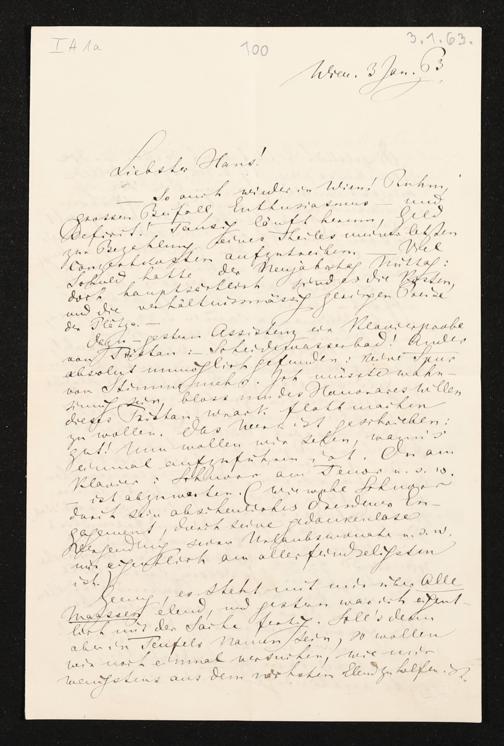 I A 1a
100
3.1.63.
Wien. 3 Jan. 63
Liebster Hans!
— So auch wieder in Wien! Ruhm,
grossen Beifall, Enthusiasmus — und
Deficit! Tausig läuft herum, Geld
zur Bezahlung seines Theiles meiner letzten
Concertkosten aufzutreiben — Viel
Schuld hatte der Neujahrstag Mittag:
doch hauptsächlich sind es die Kosten,
und die verhältnissmässig geringen Preise
der Plätze. —
gestern Assistenz einer Klavierprobe
von Tristan: — Scheidewasserbad! Ander
absolut unmöglich gefunden: keine Spur
von Stimme mehr. Ich müsste wahn-
sinnig sein, bloss um des Honorares willen
diesen Tristan flott machen
zu wollen. Das Werk ist geschrieben:
gut! Nun wollen wir sehen, wann's
einmal aufzuführen ist. Ob am
Klavier: Schnorr am Tenor u. s. w.
— ist abzuwarten. (wiewohl Schnorr
durch sein abscheuliches Dresdener En-
gagement, durch seine gedankenlose
seiner Urlaubsmonate u. s. w.
mir eigentlich am allerfeindseligsten
ist.)
Genug, es steht mit mir über alle
Maassen elend, und gestern war ich eigent-
lich mit der Sache fertig. Soll's denn
aber in Teufels Namen sein, so wollen
wir noch einmal versuchen, wie mir
wenigstens aus dem nächsten Elend zu helfen ist.